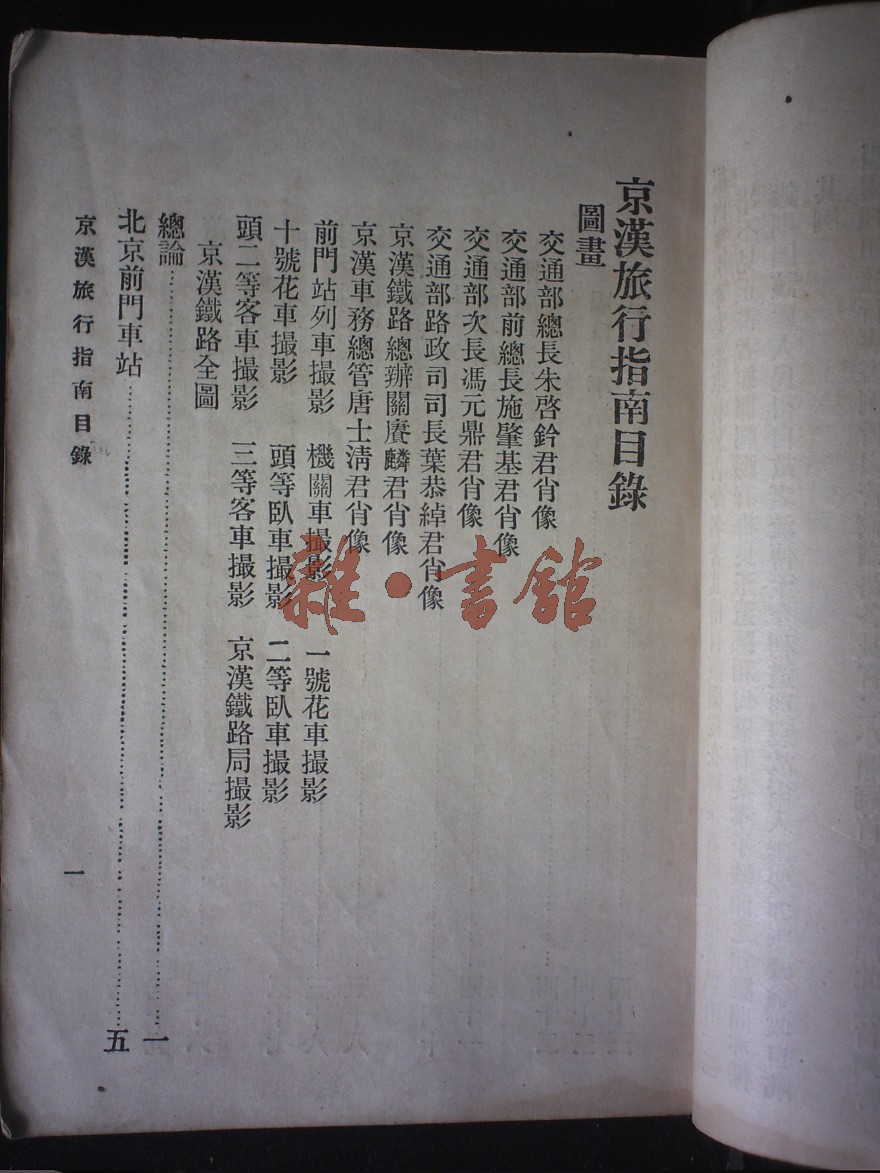 京漢旅行指南目錄
圖畫
交通部總長朱啓鈐君肖像
交通部前總長施肇基君肖像
交通部次長馮元鼎君肖像
交通部路政司司長葉恭綽君肖像
京漢鐵路總辦關賡麟君肖像
京漢車務總管唐士淸君肖像
前門站列車撮影 機關車撮影 一號花車撮影
十號花車撮影 頭等臥車撮影 二等臥車撮影
頭二等客車撮影 三等客車撮影 京漢鐵路局撮影
京漢鐵路全圖
總論 一
北京前門車站 五
京漢旅行指南目錄
一
雜·書館